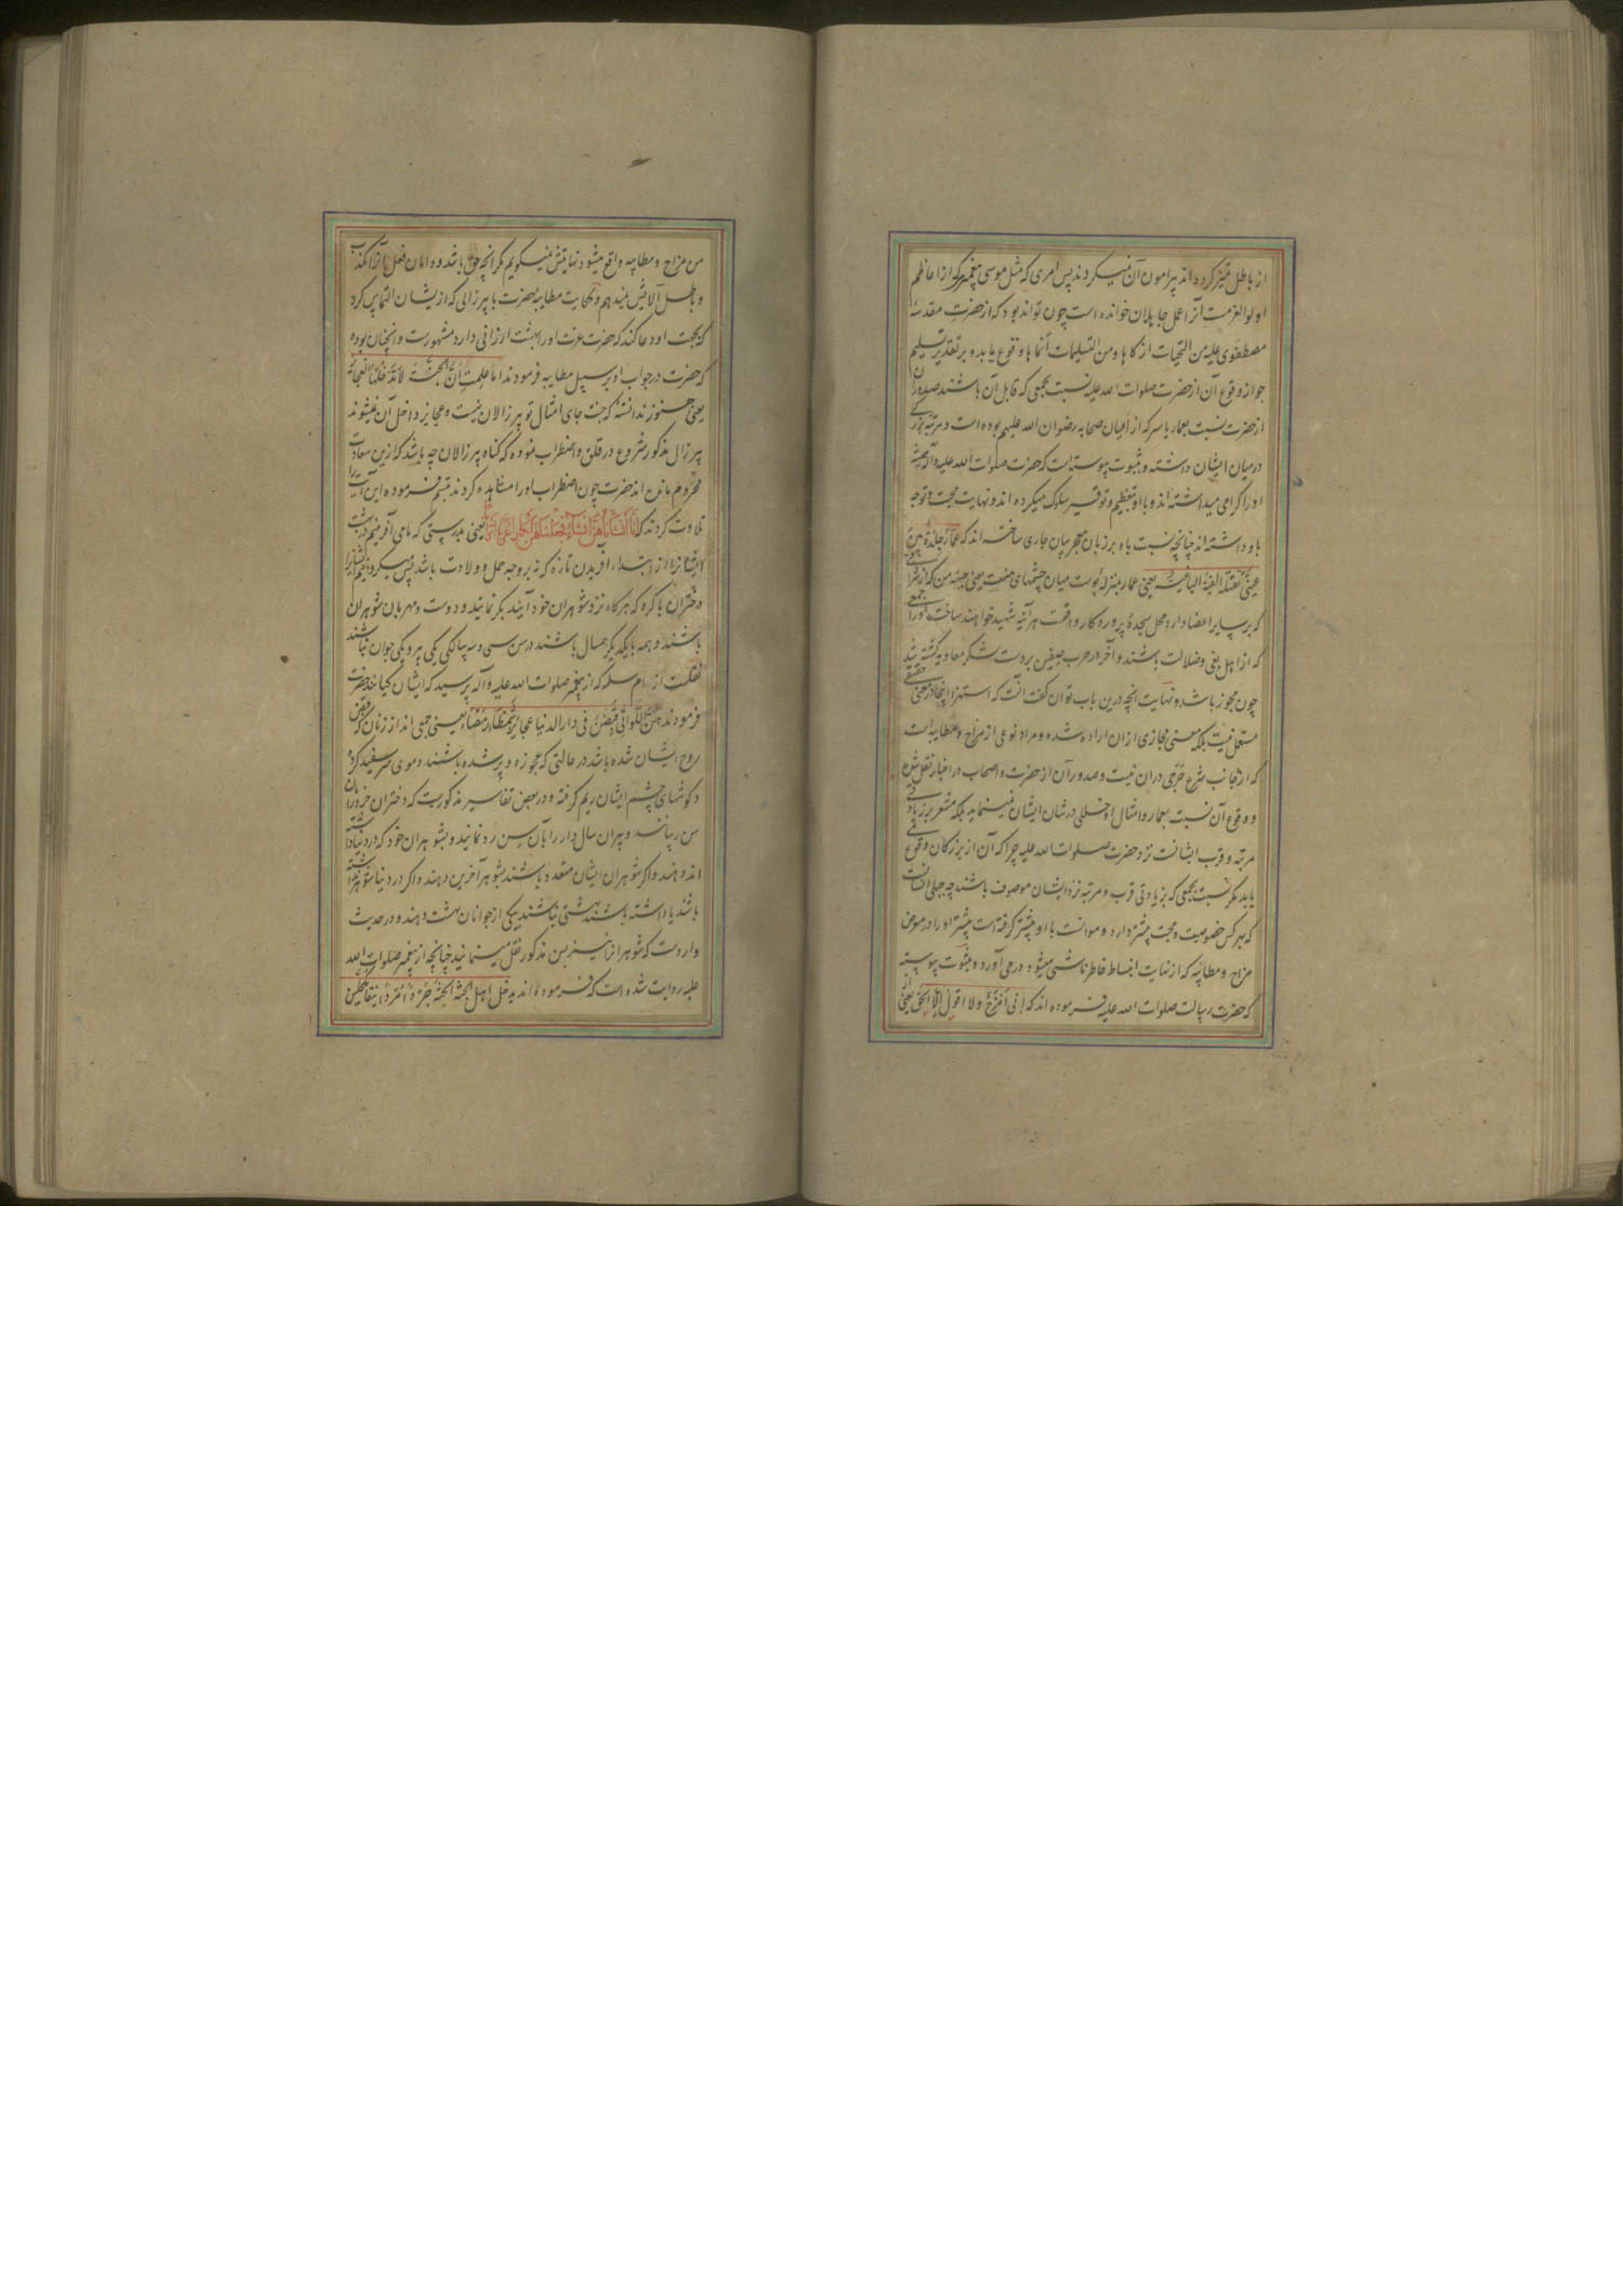 از باطل تمیز کرده اند پیرامون آن نمیکردند پس امری که مثل موسی پیغمبر که از اعاظم
اولوالعزمست آنرا عمل جاهلان خوانده است چون تواند بود که از حضرت مقدسهٔ
مصطفوی علیه من التحیات از کاها ومن التسلیمات انماها وقوع یابد و بر تقدیر تسلیم
جواز وقوع آن از حضرت صلوات الله علیه نسبت بجمعی که قابل آن باشند صدور آن
از حضرت نسبت بعمار یاسر که از اعیان صحابه رضوان الله علیهم بوده است و مرتبه بزرکی
در میان ایشان داشته و بثبوت پیوسته است که حضرت صلوات الله علیه وآله همیشه
او را کرامی میداشته اند و با او بتعظیم و توقیر سلوک میکرده اند و نهایت محبت و توجه
باو داشته اند چنانچه نسبت باو بر زبان معجز بیان جاری ساخته اند که عمار جلدة بین
عینی تقتله الفئة الباغیة یعنی عمار بمنزله پوست میان چشمهای منست یعنی جبهه من که از شرفی
که بر سایر اعضا دارد محل سجدهٔ پروردکار واقعست هرآینه شهید خواهند ساخت او را جمعی
که از اهل بغی و ضلالت باشند و آخر در حرب صفین بر دست لشکر معاویه کشته شد
چون مجوز باشد و نهایت آنچه درین باب توان کفت آنست که استهزا اینجا در معنی حقیقی
مستعمل نیست بلکه معنی مجازی ازان اراده شده و مراد نوعی از مزاح و مطایبه است
که از جانب شرع حرجی دران نیست و صدور آن از حضرت و اصحاب در اخبار نقل شده
و وقوع آن نسبت بعمار و امثال او خللی در شان ایشان نمینماید بلکه مشعر بر زیادتی
مرتبه و قرب ایشانست نزد حضرت صلوات الله علیه چرا که آن از بزرکان وقوع نمی
یابد مکر نسبت بجمعی که بزیادتی قرب و مرتبه نزد ایشان موصوف باشند چه جبلی انسانست
که بهر کس خصوصیت و محبت بیشتر دارد و موانست با او بیشتر کرفته است بیشتر او را در معرض
مزاح و مطایبه که از نهایت انبساط خاطر ناشی میشود در می آورد و بثبوت پیوسته
که حضرت رسالت صلوات الله علیه فرموده اند که انی امزح ولا اقول الا الحق یعنی از
من مزاح و مطایبه واقع میشود نهایتش نمیکویم مکر آنچه حق باشد و دامان فعل را بکذب
و باطل آلایش نمیدهم و حکایت مطایبهٔ حضرت با پیرزالی که از ایشان التماس کرد
که بجهت او دعا کند که حضرت عزت او را بهشت ارزانی دارد مشهورست و آنچنان بوده
که حضرت در جواب او بر سبیل مطایبه فرمودند اما علمت ان الجنة لا تدخلها العجائز
یعنی هنوز ندانسته که جنت جای امثال تو پیرزالان نیست و عجایز داخل آن نمیشوند
پیرزال مذکور شروع در قلق و اضطراب نموده که کناه پیرزالان چه باشد که ازین سعادت
محروم مانده اند حضرت چون اضطراب او را مشاهده کردند تبسم فرموده این آیت را
تلاوت کردند که انا انشأناهن انشاء فجعلناهن ابکارا عربا اترابا یعنی بدرستی که ما می آفرینیم در بهشت
ایشانرا از ابتدا آفریدن تازه که نه بروجه حمل و ولادت باشد پس میکردانیم ایشانرا
دختران باکره که هرکاه نزد شوهران خود آیند بکر نمایند و دوست و مهربان شوهران
باشند و همه با یکدیکر همسال باشند در سن سی و سه سالکی یکی پیر و یکی جوان نباشند
نقلست از ام سلمه که از پیغمبر صلوات الله علیه وآله پرسید که ایشان کیانند حضرت
فرمودند هن اللواتی قبضن فی دار الدنیا عجایز شمطا رمصا یعنی جمعی اند از زنان که قبض
روح ایشان شده باشد در حالتی که عجوزه و پیر شده باشند و موی سر سفید کرده
و کوشهای چشم ایشان ریم کرفته و در بعض تفاسیر مذکورست که دختران خرد را بآن
سن رسانند و پیران سال دار را بآن سن رد نمایند و بشوهران خود که در دنیا داشته
اند دهند و اکر شوهران ایشان متعدد باشند بشوهر آخرین دهند و اکر در دنیا شوهر نداشته
باشند یا داشته باشند بهشتی نباشند بیکی از جوانان بهشت دهند و در حدیث
واردست که شوهرانرا نیز بسن مذکور نقل مینمایند چنانچه از پیغمبر صلوات الله
علیه روایت شده است که فرموده اند یدخل اهل الجنة الجنة جردا مردا مکحلین